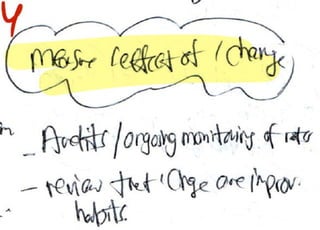 4
Measure effect of change
- Audits / ongoing monitoring of rates
- review that chge are improv.
habits.